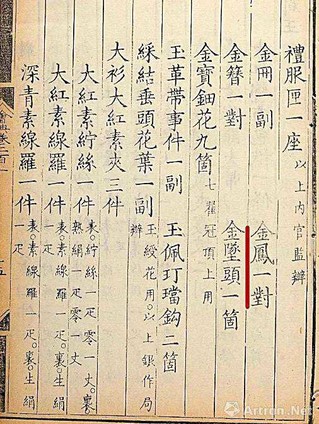 禮服匣一座以上内官監辦
金冊一副 金鳳一對
金簪一對 金墜頭一箇
金寶鈿花九箇七翟冠頂上用
玉革帶事件一副 玉佩玎璫鈎二箇
綵結垂頭花葉一副玉綬花用。以上銀作局辦
大衫大紅素夾三件
大紅素紵絲一件表。紵絲一疋零一丈。裏。熟絹一疋零一丈
大紅素線羅一件表。素線羅一疋。裏。生絹一疋
深青素線羅一件表。素線羅一疋。裏。生絹一疋
Artron.Net